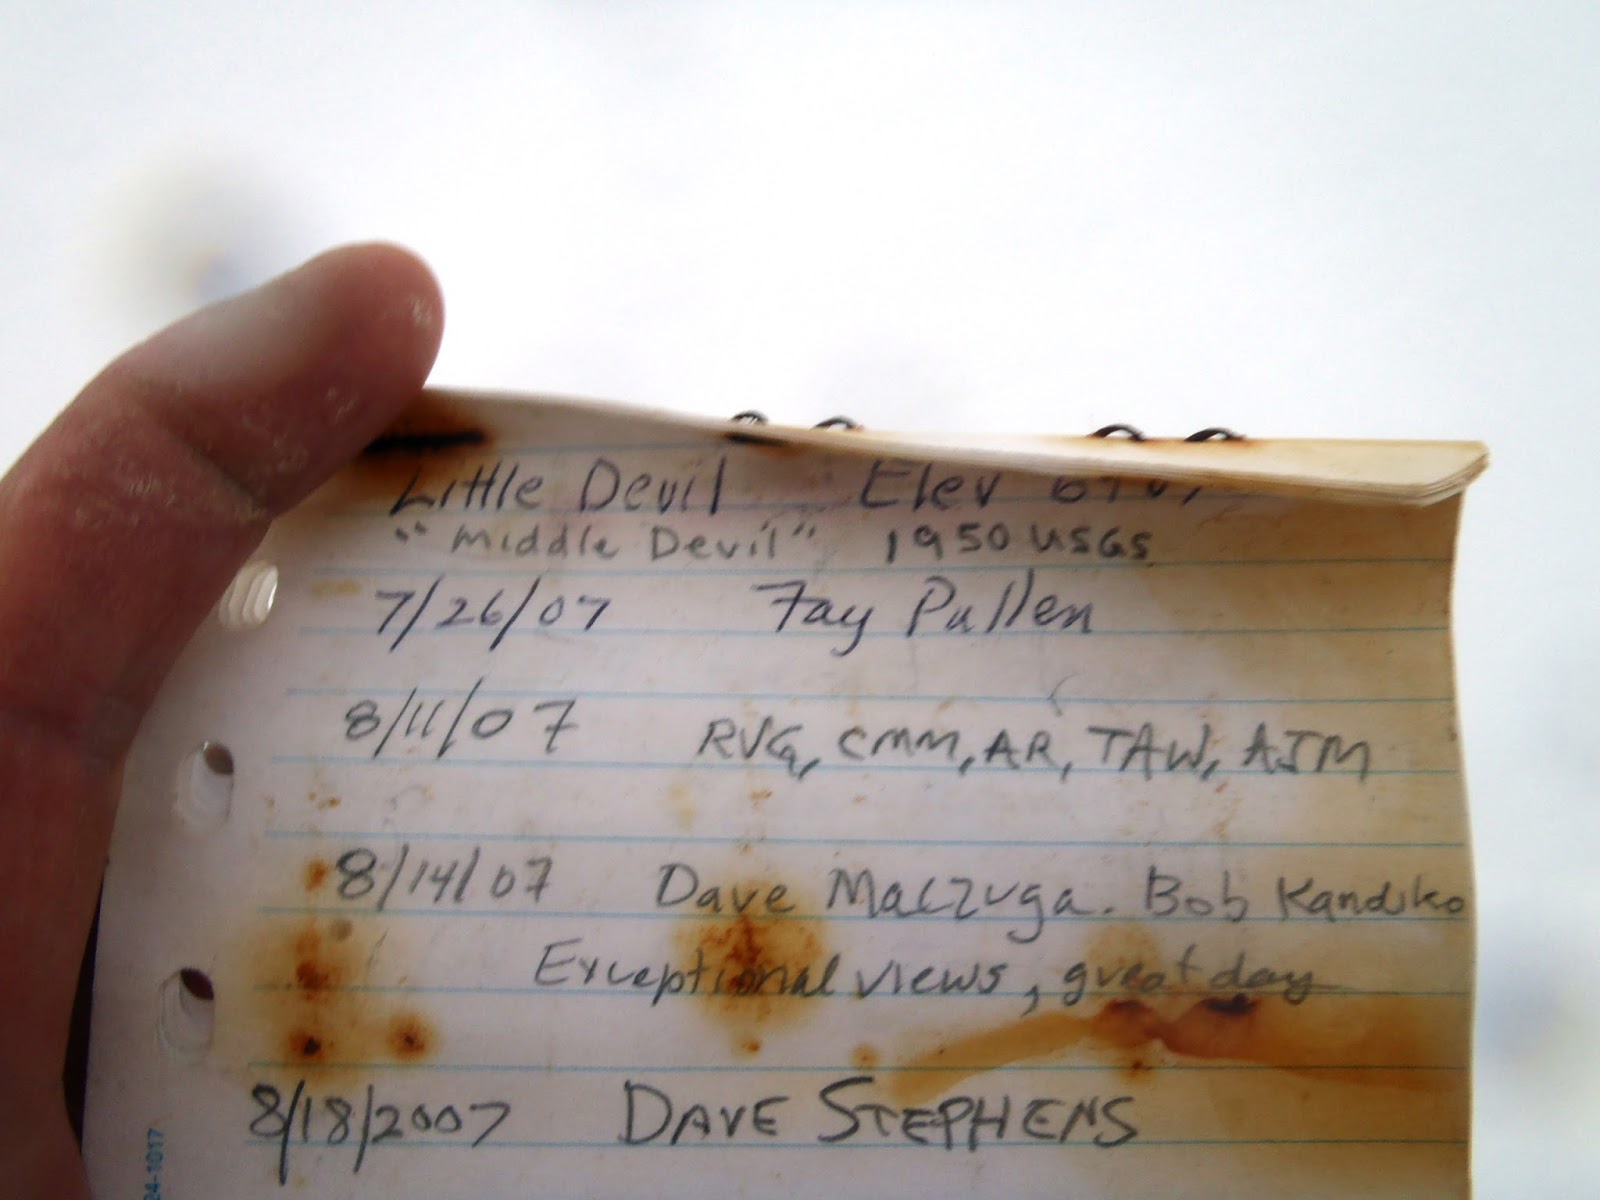 Little Devil Elev
"Middle Devil" 1950 USGS
7/26/07 Fay Pullen
8/11/07 RVG, CMM, AR, TAW, AJM
8/14/07 Dave Maczuga. Bob Kandiko
Exceptional views, great day
8/18/2007 DAVE STEPHENS
24-1017